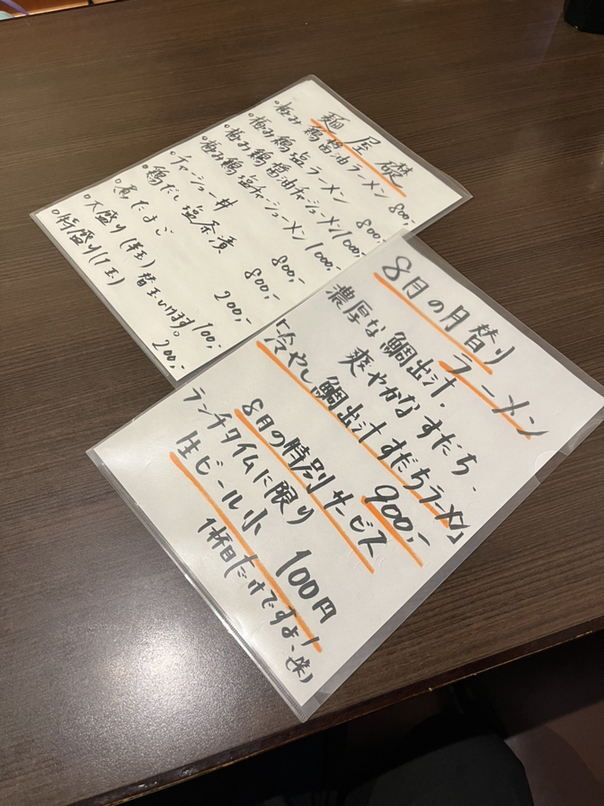 麺屋礎
○極み鶏醤油ラーメン 800,-
○極み鶏塩ラーメン 800,-
○極み鶏醤油チャーシューメン 1000,-
○極み鶏塩チャーシューメン 1000,-
○チャーシュー丼 800,-
○鶏だし塩茶漬 800,-
○煮たまご 200,-
○大盛り(半玉) 替玉いけます。 100,-
○特盛り(1玉) 200,-
8月の月替り
ラーメン
濃厚な鯛出汁・
爽やかなすだち、
「冷やし鯛出汁すだちラーメン」
900,-
8月の特別サービス
ランチタイムに限り
生ビール小 100円
1杯目だけですよ、(笑)